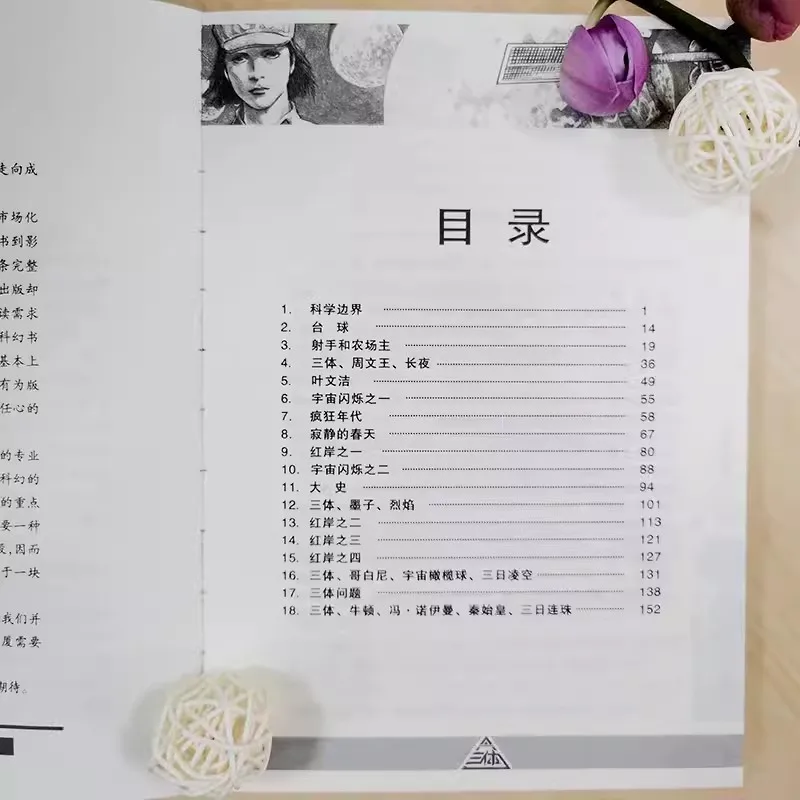 走向成
市场化
书到影
条完整
出版却
读需求
科幻书
基本上
有为版
任心的
的专业
科幻的
的重点
要一种
及,因而
于一块
我们并
覆需要
期待。
目 录
1. 科学边界 1
2. 台 球 14
3. 射手和农场主 19
4. 三体、周文王、长夜 36
5. 叶文洁 49
6. 宇宙闪烁之一 55
7. 疯狂年代 58
8. 寂静的春天 67
9. 红岸之一 80
10. 宇宙闪烁之二 88
11. 大 史 94
12. 三体、墨子、烈焰 101
13. 红岸之二 113
14. 红岸之三 121
15. 红岸之四 127
16. 三体、哥白尼、宇宙橄榄球、三日凌空 131
17. 三体问题 138
18. 三体、牛顿、冯·诺伊曼、秦始皇、三日连珠 152
三体